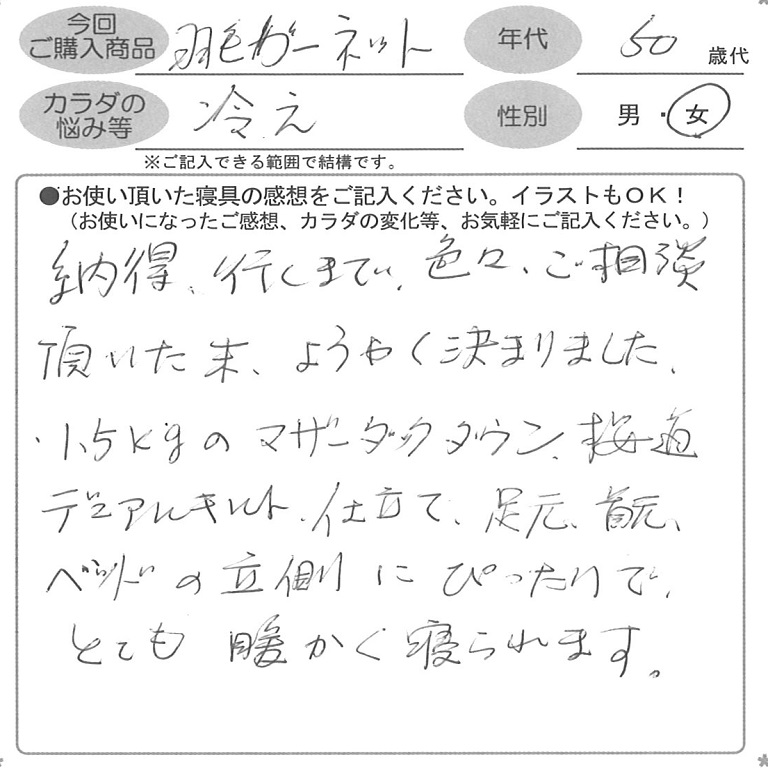 今回
ご購入商品
羽毛ガーネット
年代
50 歳代
カラダの
悩み等
冷え
性別
男・女
※ご記入できる範囲で結構です。
●お使い頂いた寝具の感想をご記入ください。イラストもOK！
（お使いになったご感想、カラダの変化等、お気軽にご記入ください。）
納得、行くまで、色々、ご相談
頂いた末、ようやく決まりました。
・1.5kgのマザーダックダウン、
デュアルキルト、仕立て、足元、首元、
ベッドの立側にぴったりで、
とても暖かく寝られます。